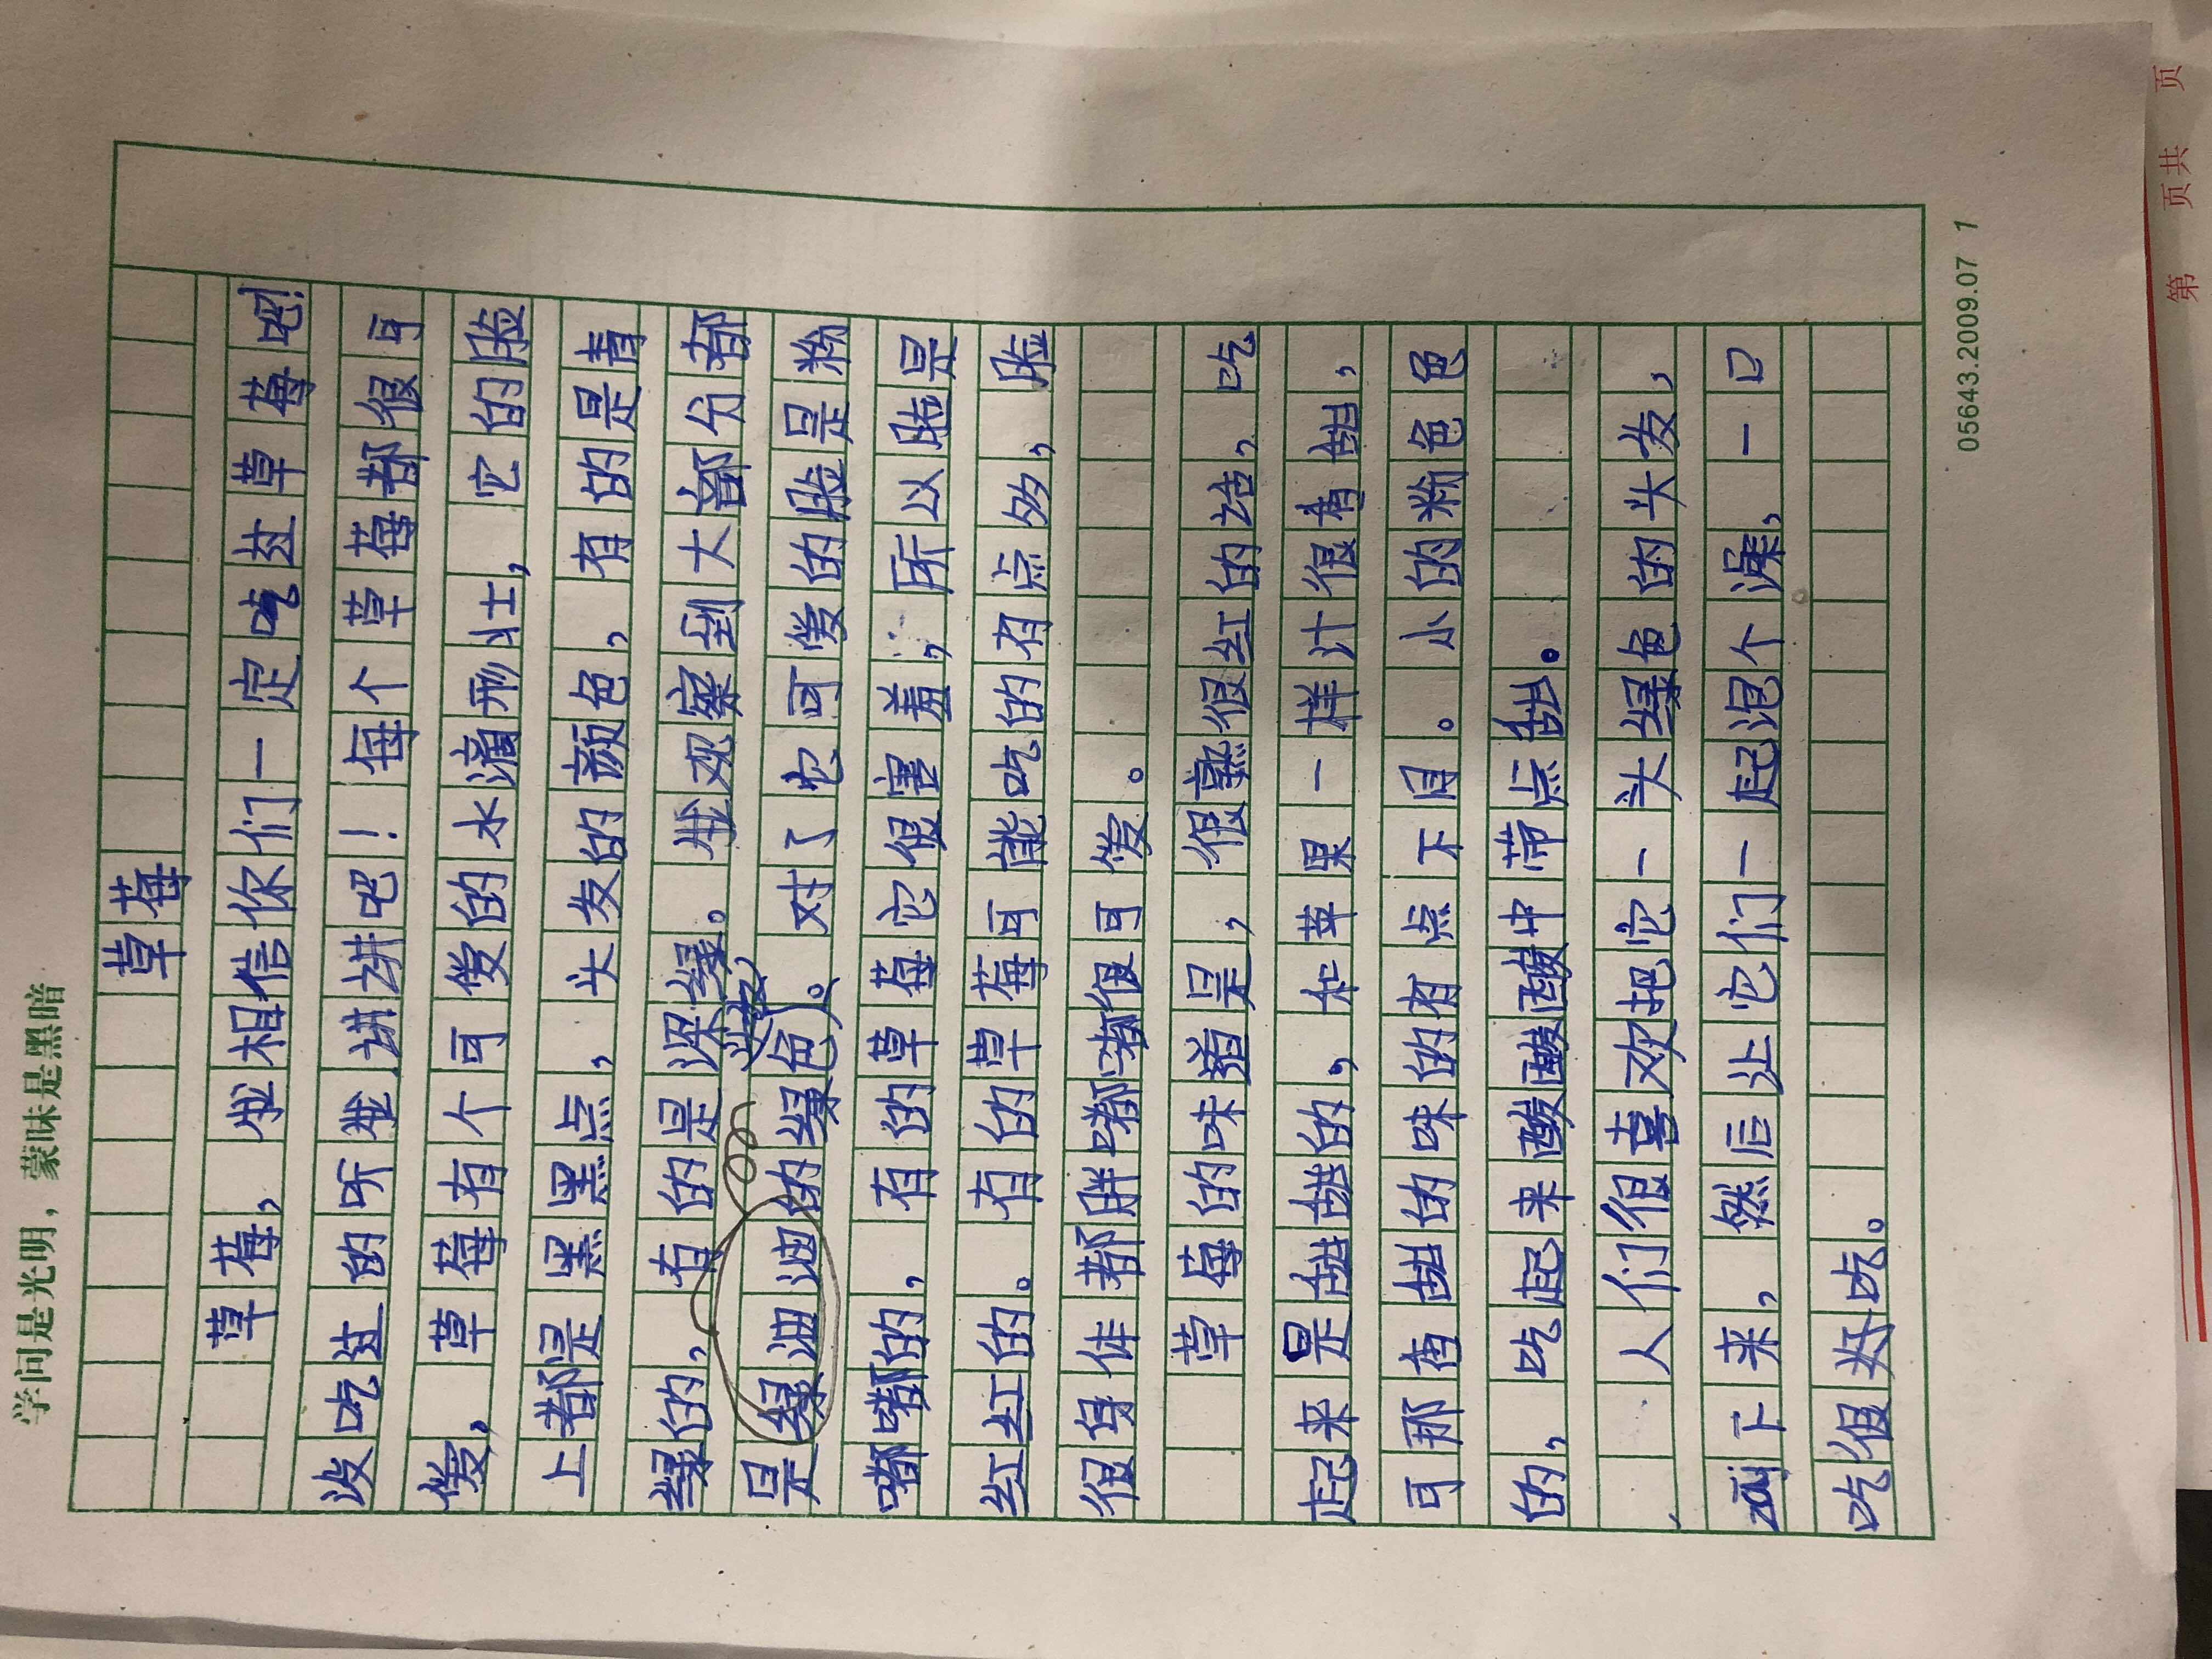 学问是光明，蒙昧是黑暗
草莓
草莓，我相信你们一定吃过草莓吧!
没吃过的听我讲讲吧！每个草莓都很可
爱。草莓有个可爱的水滴形斗士，它的脸
上都是黑黑点，头发的颜色，有的是青
绿的，有的是深绿。我观察到大部分都
是绿油油的绿色）。对了它可爱的脸是粉
嘟嘟的，有的草莓它很害羞，所以脸是
红红的。有的草莓可能吃的有点多，脸
很身体都胖嘟嘟很可爱。
草莓的味道是，很熟很红的话，吃
起来是甜甜的，和苹果一样汁很香甜，
可那香甜的味的有点下目。小的粉色色
的，吃起来酸酸酸中带点甜。
人们很喜欢把它一头绿色的头发，
下来，然后让它们一起泡个澡，一口
吃很好吃。
05643.2009.07 1
第 页共 页